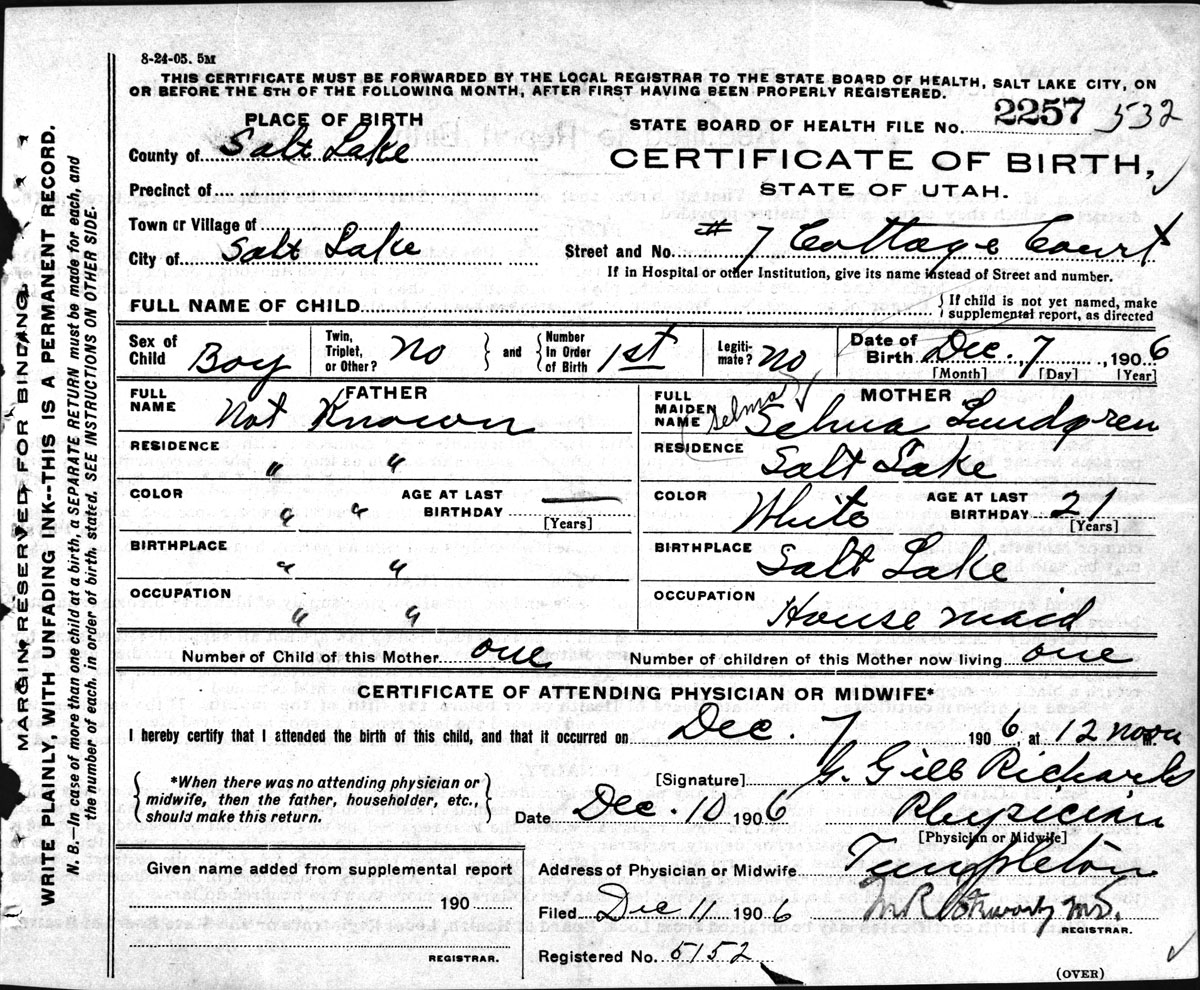 8-24-05. 5M
THIS CERTIFICATE MUST BE FORWARDED BY THE LOCAL REGISTRAR TO THE STATE BOARD OF HEALTH, SALT LAKE CITY, ON
OR BEFORE THE 5TH OF THE FOLLOWING MONTH, AFTER FIRST HAVING BEEN PROPERLY REGISTERED.
PLACE OF BIRTH
STATE BOARD OF HEALTH FILE No. 2257 532
County of Salt Lake
CERTIFICATE OF BIRTH,
STATE OF UTAH.
Precinct of
Town or Village of
City of Salt Lake
Street and No. # 7 Cottage Court
If in Hospital or other Institution, give its name instead of Street and number.
FULL NAME OF CHILD
{ If child is not yet named, make
supplemental report, as directed
Sex of Child Boy
Twin, Triplet, or Other? No } and { Number In Order of Birth 1st
Legiti- mate? no
Date of Birth Dec. 7, 1906
[Month] [Day] [Year]
FATHER
FULL NAME Not Known
RESIDENCE " "
COLOR " " AGE AT LAST BIRTHDAY —
[Years]
BIRTHPLACE " "
OCCUPATION " "
MOTHER
Selma
FULL MAIDEN NAME Selma Lundgren
RESIDENCE Salt Lake
COLOR White AGE AT LAST BIRTHDAY 21
[Years]
BIRTHPLACE Salt Lake
OCCUPATION House maid
Number of Child of this Mother one Number of children of this Mother now living one
CERTIFICATE OF ATTENDING PHYSICIAN OR MIDWIFE*
I hereby certify that I attended the birth of this child, and that it occurred on Dec. 7 1906, at 12 noon M.
{ *When there was no attending physician or
midwife, then the father, householder, etc.,
should make this return. }
[Signature] G. Gill Richards
Date Dec. 10 1906 Physician
[Physician or Midwife]
Given name added from supplemental report
190
REGISTRAR.
Address of Physician or Midwife Templeton
Filed Dec 11 1906 M.R. M.D.
REGISTRAR.
Registered No. 5152
(OVER)
MARGIN RESERVED FOR BINDING
WRITE PLAINLY, WITH UNFADING INK--THIS IS A PERMANENT RECORD.
N. B.—In case of more than one child at a birth, a SEPARATE RETURN must be made for each, and
the number of each, in order of birth, stated. SEE INSTRUCTIONS ON OTHER SIDE.